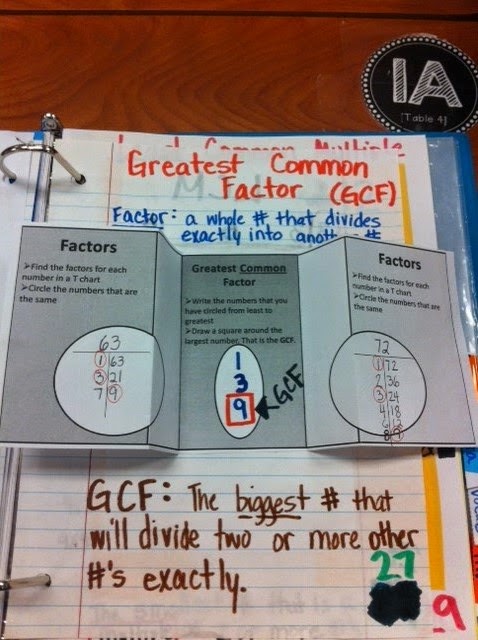 IA
[Table 4]
Common Multiple
Greatest Common
Factor (GCF)
Factor: a whole # that divides
exactly into another #
Factors
➤Find the factors for each
number in a T chart
➤Circle the numbers that are
the same
63
1 63
3 21
7 9
Greatest Common
Factor
➤Write the numbers that you
have circled from least to
greatest
➤Draw a square around the
largest number. That is the GCF.
1
3
9
GCF
Factors
➤Find the factors for each
number in a T chart
➤Circle the numbers that are
the same
72
1 72
2 36
3 24
4 18
8 9
GCF: The biggest # that
will divide two or more other
#'s exactly.
27
9